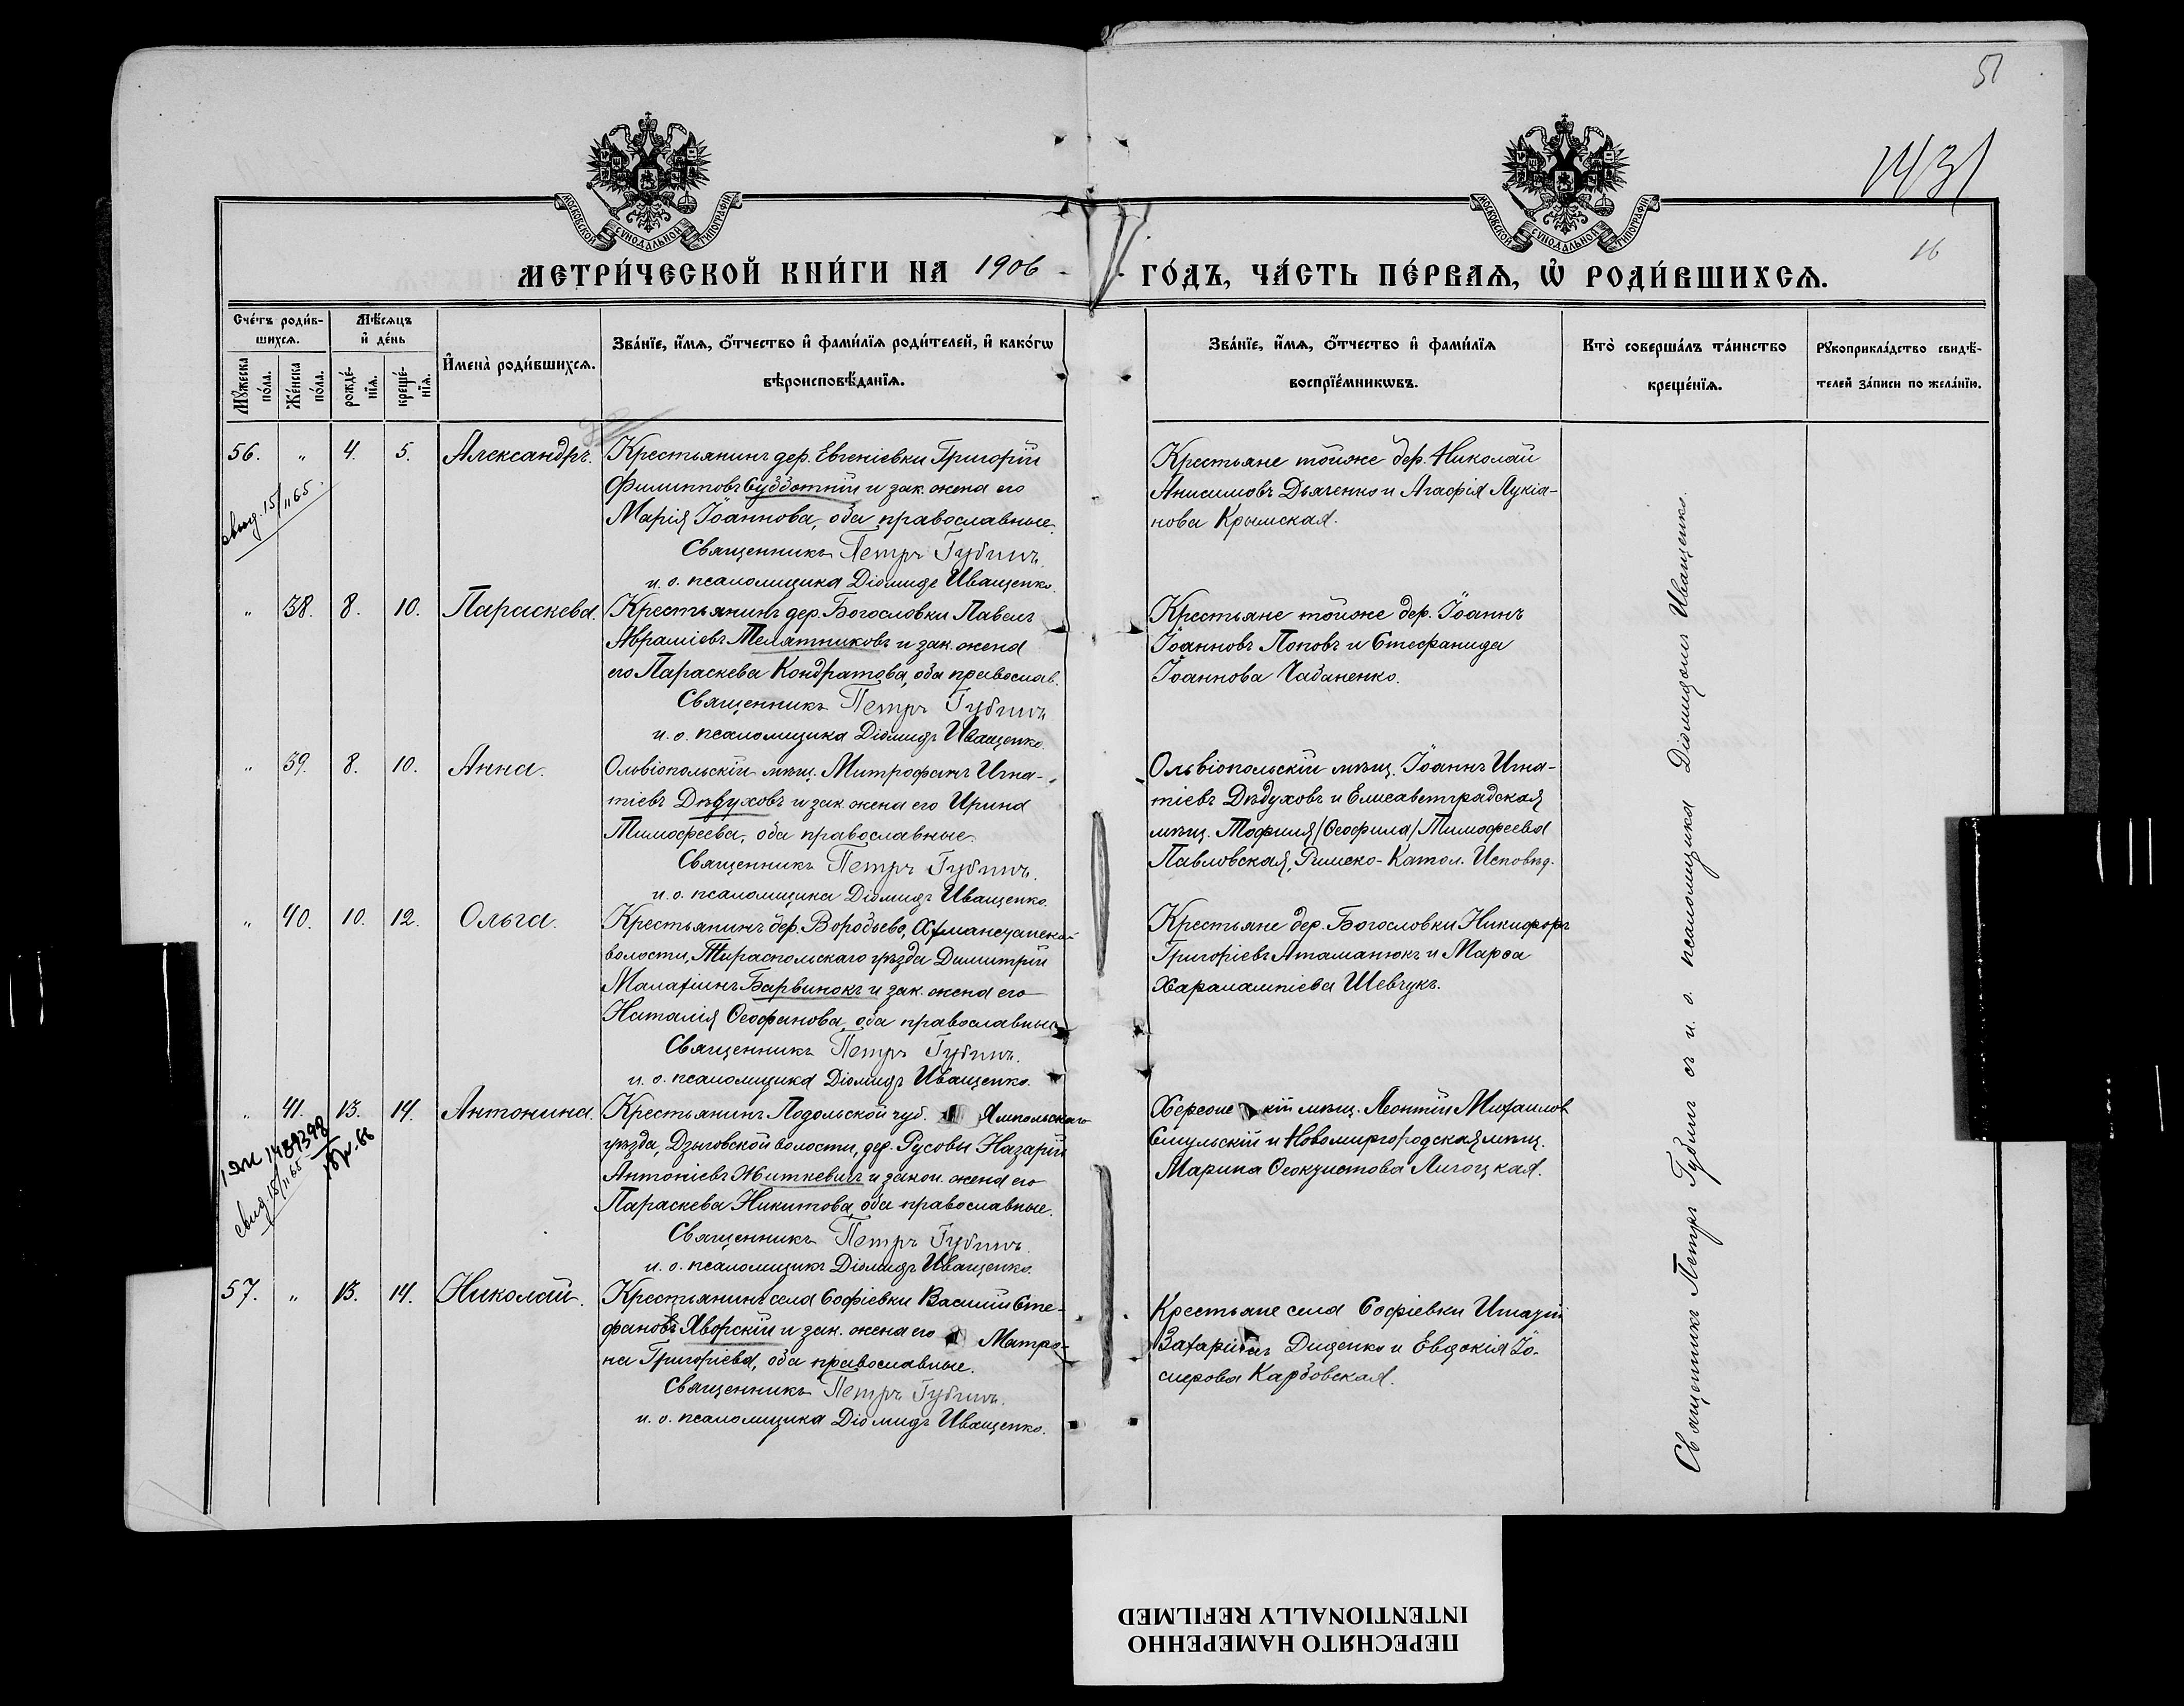 51
1431
16
МОСКОВСКОЙ СѴНОДАЛЬНОЙ ТИПОГРАФІИ
МОСКОВСКОЙ СѴНОДАЛЬНОЙ ТИПОГРАФІИ
МЕТРИ́ЧЕСКОЙ КНИ́ГИ НА 1906
ГО́ДЪ, ЧА́СТЬ ПЕ́РВАѦ, Ѽ РОДИ́ВШИХСѦ.
Сче́тъ роди́в-
шихсѧ.
Мꙋ́жеска по́ла.
Же́нска по́ла.
Мѣ́сѧцъ и҆ де́нь
рожде́-
нїѧ.
креще́-
нїѧ.
И҆мена̀ роди́вшихсѧ.
Зва́нїе, и҆́мѧ, ѻ҆́тчество и҆ фами́лїѧ роди́телей, и҆ како́гѡ
вѣроисповѣ́данїѧ.
Зва́нїе, и҆́мѧ, ѻ҆́тчество и҆ фами́лїѧ
воспрїе́мникѡвъ.
Кто̀ соверша́лъ та́инство
креще́нїѧ.
Рꙋкоприкла́дство свидѣ́-
телей за́писи по жела́нїю.
56. " 4. 5. Александръ.
свид. 15/II 65
Крестьянинъ дер. Евгеніевки Григорій
Филипповъ Субботній и зак. жена его
Марія Іоаннова, оба православные.
Священникъ Петръ Губинъ.
и. о. псаломщика Діомидъ Иващенко.
Крестьяне тойже дер. Николай
Анисимовъ Дьяченко и Агафія Лукіа-
нова Крымская.
" 38. 8. 10. Параскева.
Крестьянинъ дер. Богословки Павелъ
Авраміевъ Телятниковъ и зак. жена
его Параскева Кондратова, оба православ.
Священникъ Петръ Губинъ
и. о. псаломщика Діомидъ Иващенко.
Крестьяне тойже дер. Іоаннъ
Іоанновъ Поповъ и Стефанида
Іоаннова Чабаненко.
" 39. 8. 10. Анна.
Ольвіопольскій мѣщ. Митрофанъ Игна-
тіевъ Дѣдуховъ и зак. жена его Ирина
Тимофеева, оба православные.
Священникъ Петръ Губинъ.
и. о. псаломщика Діомидъ Иващенко.
Ольвіопольскій мѣщ. Іоаннъ Игна-
тіевъ Дѣдуховъ и Елисаветградская
мѣщ. Тофиля/Ѳеофила/Тимофеева
Павловская, Римско-Катол. Исповѣд.
" 40. 10. 12. Ольга.
Крестьянинъ дер. Воробьево,
волости, Тираспольскаго уѣзда Димитрій
Малахіинъ Барвинокъ и зак. жена его
Наталія Ѳеофанова, оба православные
Священникъ Петръ Губинъ.
и. о. псаломщика Діомидъ Иващенко.
Крестьяне дер. Богословки Никифоръ
Григоріевъ Атаманюкъ и Марѳа
Харалампіева Шевчукъ.
" 41. 13. 14. Антонина.
свид. 15/II 65
Крестьянинъ Подольской губ. Ямпольскаго
уѣзда, Дзыговской волости, дер. Русовы Назарій
Антоніевъ Житкевичъ и закон. жена его
Параскева Никитова, оба православные.
Священникъ Петръ Губинъ.
и. о. псаломщикъ Діомидъ Иващенко.
Херсонскій мѣщ. Леонтій Михаиловъ
Смульскій и Новомиргородская мѣщ.
Марина Ѳеоктистова Лигоцкая.
57. " 13. 14. Николай.
Крестьянинъ села Софіевки Василій Сте-
фановъ Яворскій и зак. жена его Матро-
на Григоріева, оба православные.
Священникъ Петръ Губинъ.
и. о. псаломщика Діомидъ Иващенко.
Крестьяне села Софіевки Игнатій
Захаріинъ Диденко и Евдокія Іо-
сифова Карбовская.
Священникъ Петръ Губинъ съ и. о. псаломщика Діомидомъ Иващенко.
ПЕРЕСНЯТО НАМЕРЕННО
INTENTIONALLY REFILMED